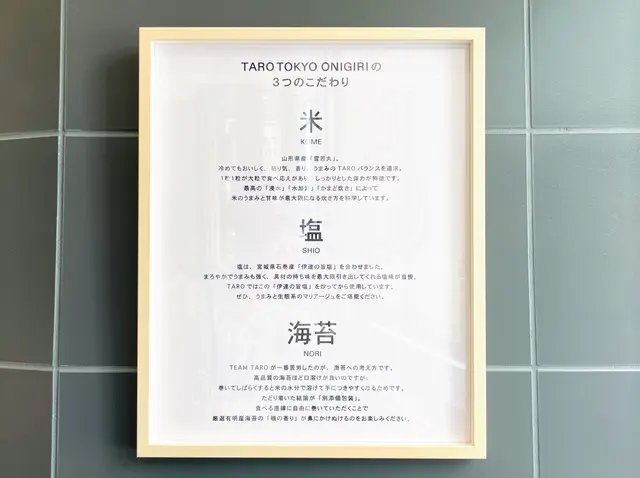 TARO TOKYO ONIGIRIの
3つのこだわり
米
KOME
山形県産「雪若丸」。
冷めてもおいしく、粘り気、香り、うまみのTAROバランスを追求。
1粒1粒が大粒で食べ応えがあり、しっかりとした弾力が特徴です。
最高の「浸水」「水加減」「かまど炊き」によって
米のうまみと甘味が最大限になる炊き方を科学しています。
塩
SHIO
塩は、宮城県石巻産「伊達の旨塩」を合わせました。
まろやかでうまみも強く、具材の持ち味を最大限引き出してくれる塩味が自慢。
TAROではこの「伊達の旨塩」を炒ってから使用しています。
ぜひ、うまみと生態系のマリアージュをご堪能ください。
海苔
NORI
TEAM TAROが一番苦労したのが、海苔への考え方です。
高品質の海苔ほど口溶けが良いのですが、
巻いてしばらくすると米の水分で溶けて手につきやすくなるためです。
たどり着いた結論が「別添個包装」。
食べる直前に自由に巻いていただくことで
厳選有明産海苔の「磯の香り」が鼻にかけぬけるのをお楽しみください。